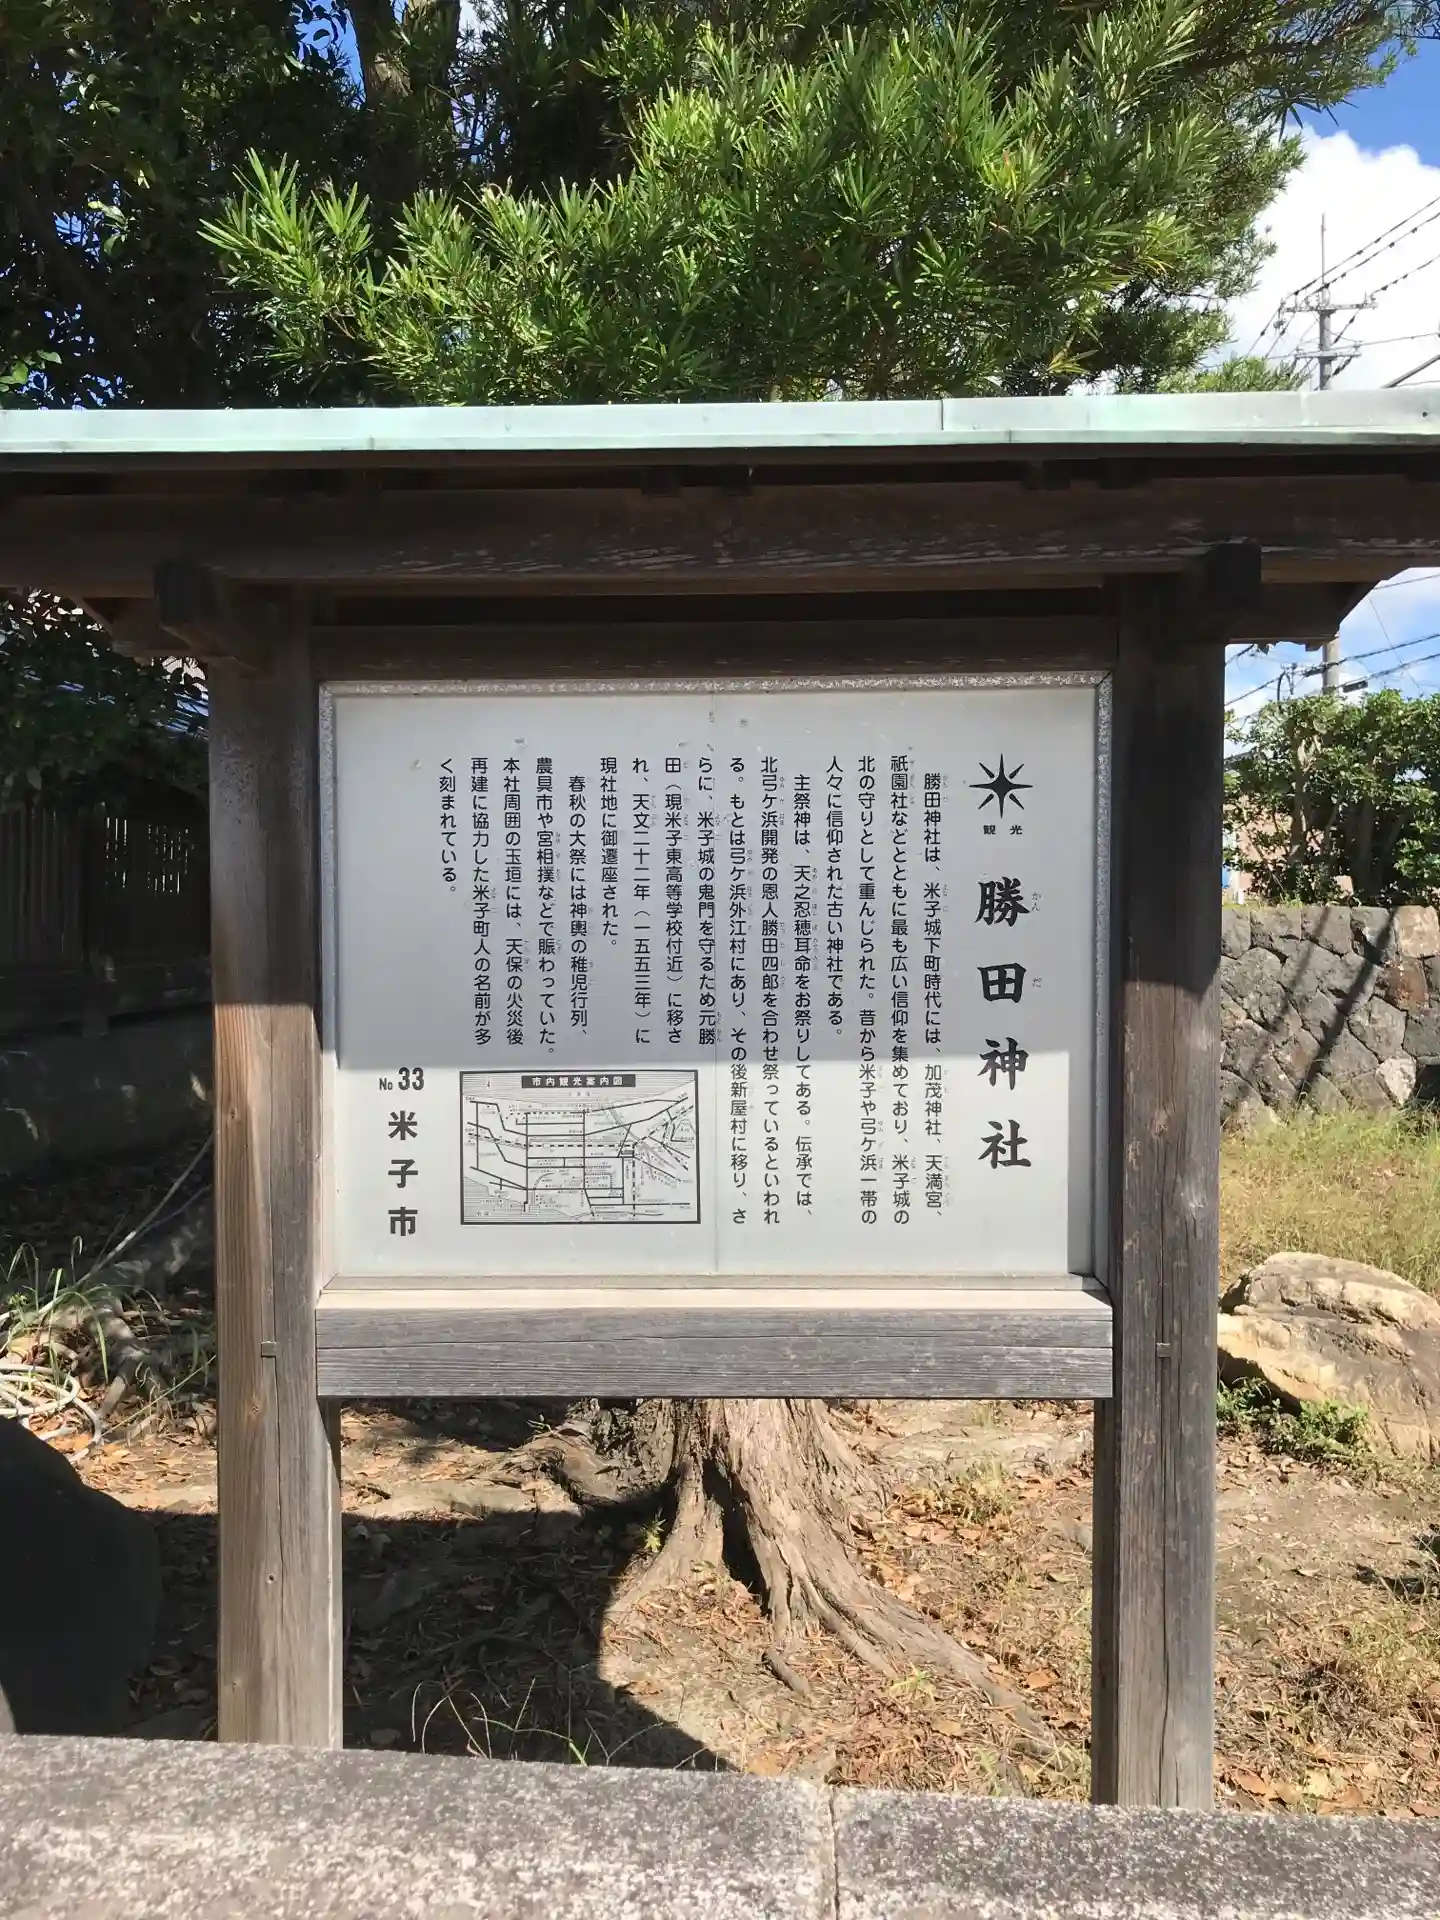 観光
勝田神社
かんだ
勝田神社は、米子城下町時代には、加茂神社、天満宮、
祇園社などとともに最も広い信仰を集めており、米子城の
北の守りとして重んじられた。昔から米子や弓ケ浜一帯の
人々に信仰された古い神社である。
主祭神は、天之忍穂耳命をお祭りしてある。伝承では、
北弓ケ浜開発の恩人勝田四郎を合わせ祭っているといわれ
る。もとは弓ケ浜外江村にあり、その後新屋村に移り、さ
らに、米子城の鬼門を守るため元勝
田（現米子東高等学校付近）に移さ
れ、天文二十二年（一五五三年）に
現社地に御遷座された。
春秋の大祭には神輿の稚児行列、
農具市や宮相撲などで賑わっていた。
本社周囲の玉垣には、天保の火災後
再建に協力した米子町人の名前が多
く刻まれている。
市内観光案内図
No 33
米子市